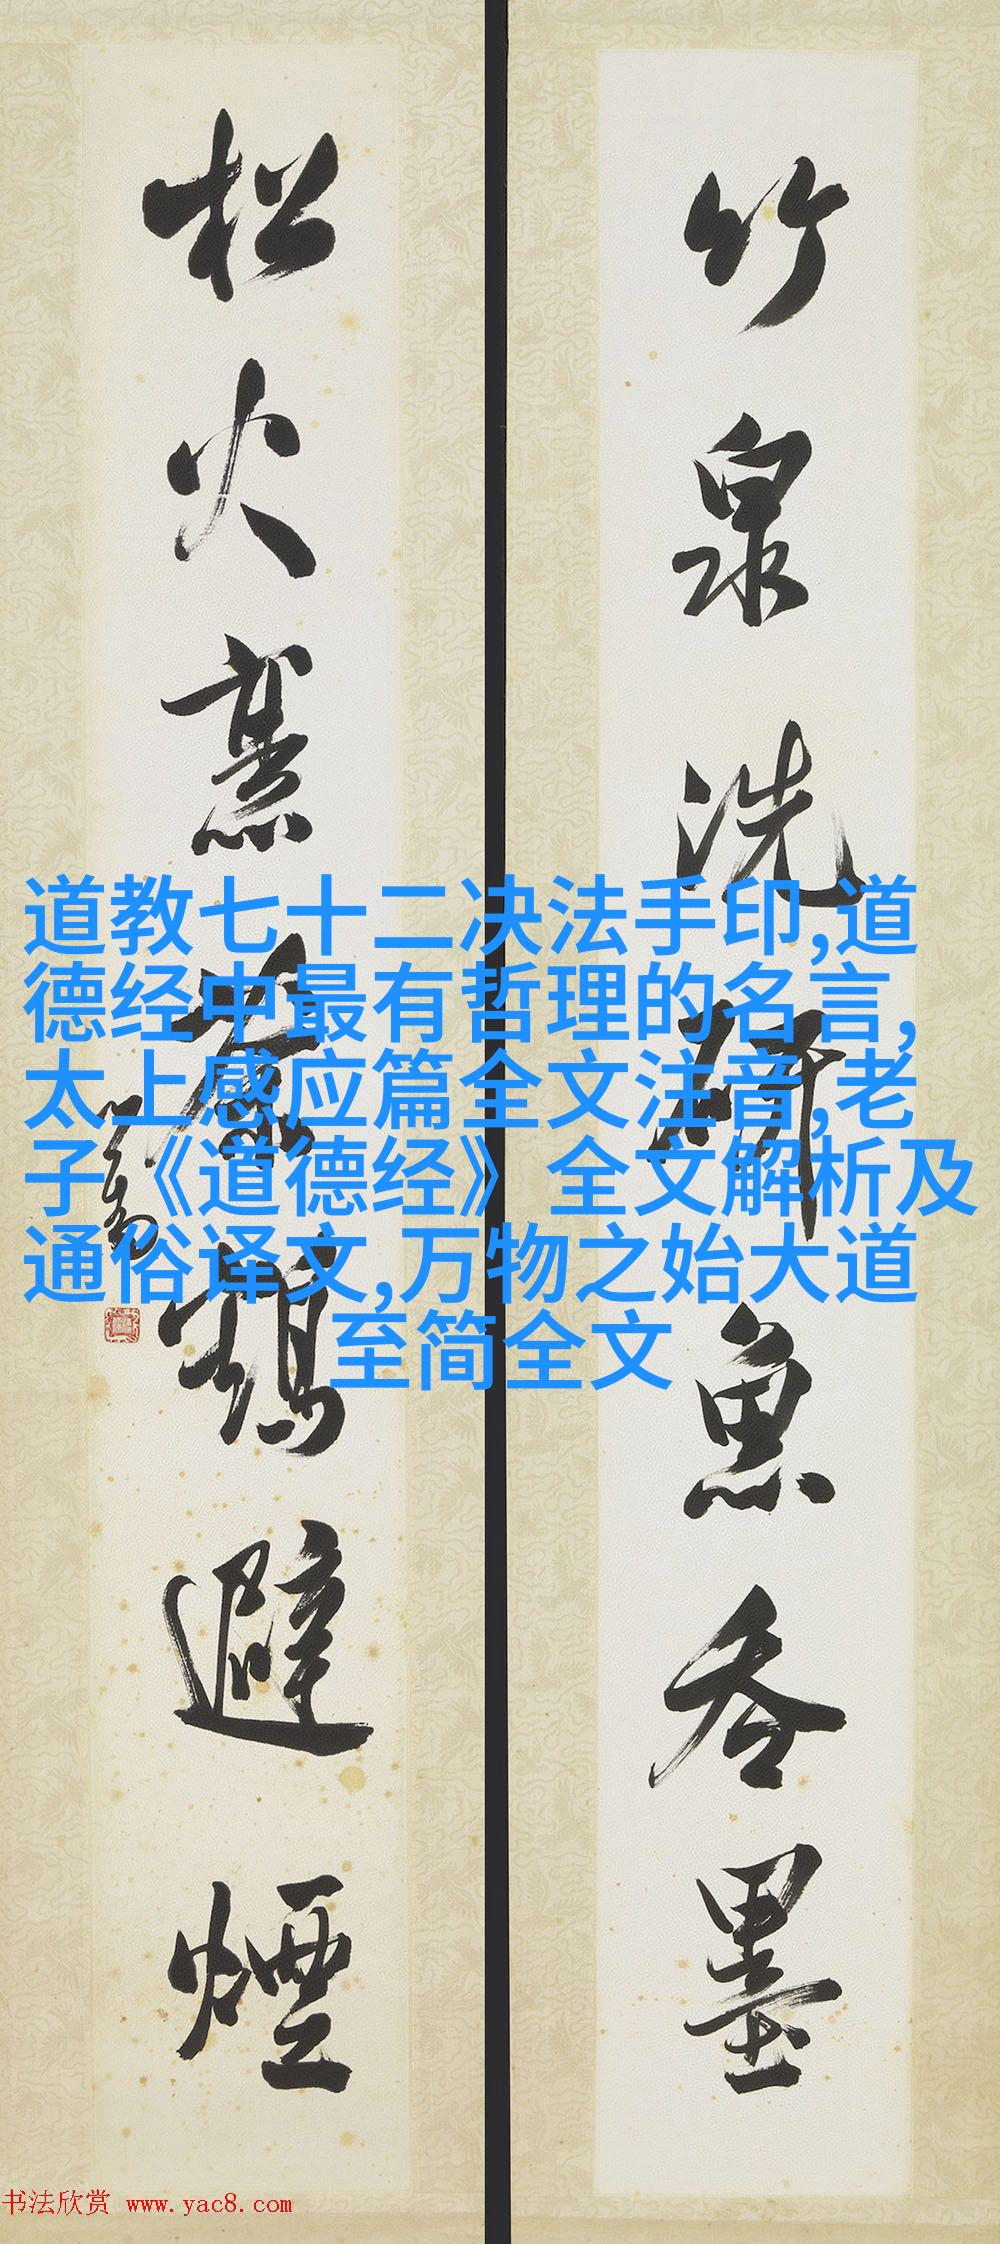 竹泉洗研魚吞墨
松火烹茶鶴避煙
道教七十二决法手印,道
德经中最有哲理的名言,
太上感应篇全文注音,老
子《道德经》全文解析及
通俗译文,万物之始大道
至简全文
书法欣赏 www.yac8.com